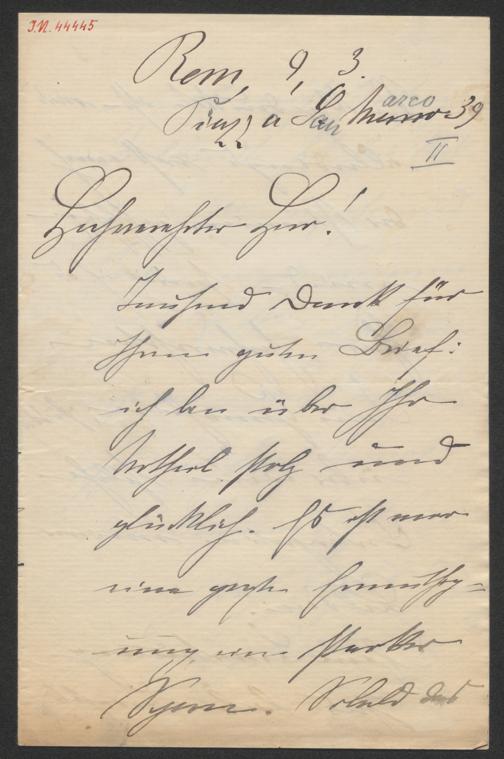 J.N. 44445
Rom, 9, 3.
Piazza San Marco 39
II
Hochverehrter Herr!
Tausend Dank für
Ihren guten Brief:
ich bin über Ihr
Urtheil stolz und
glücklich. Es ist mir
eine große Ermuthig=
ung, ein starker
Sporn. Sobald das